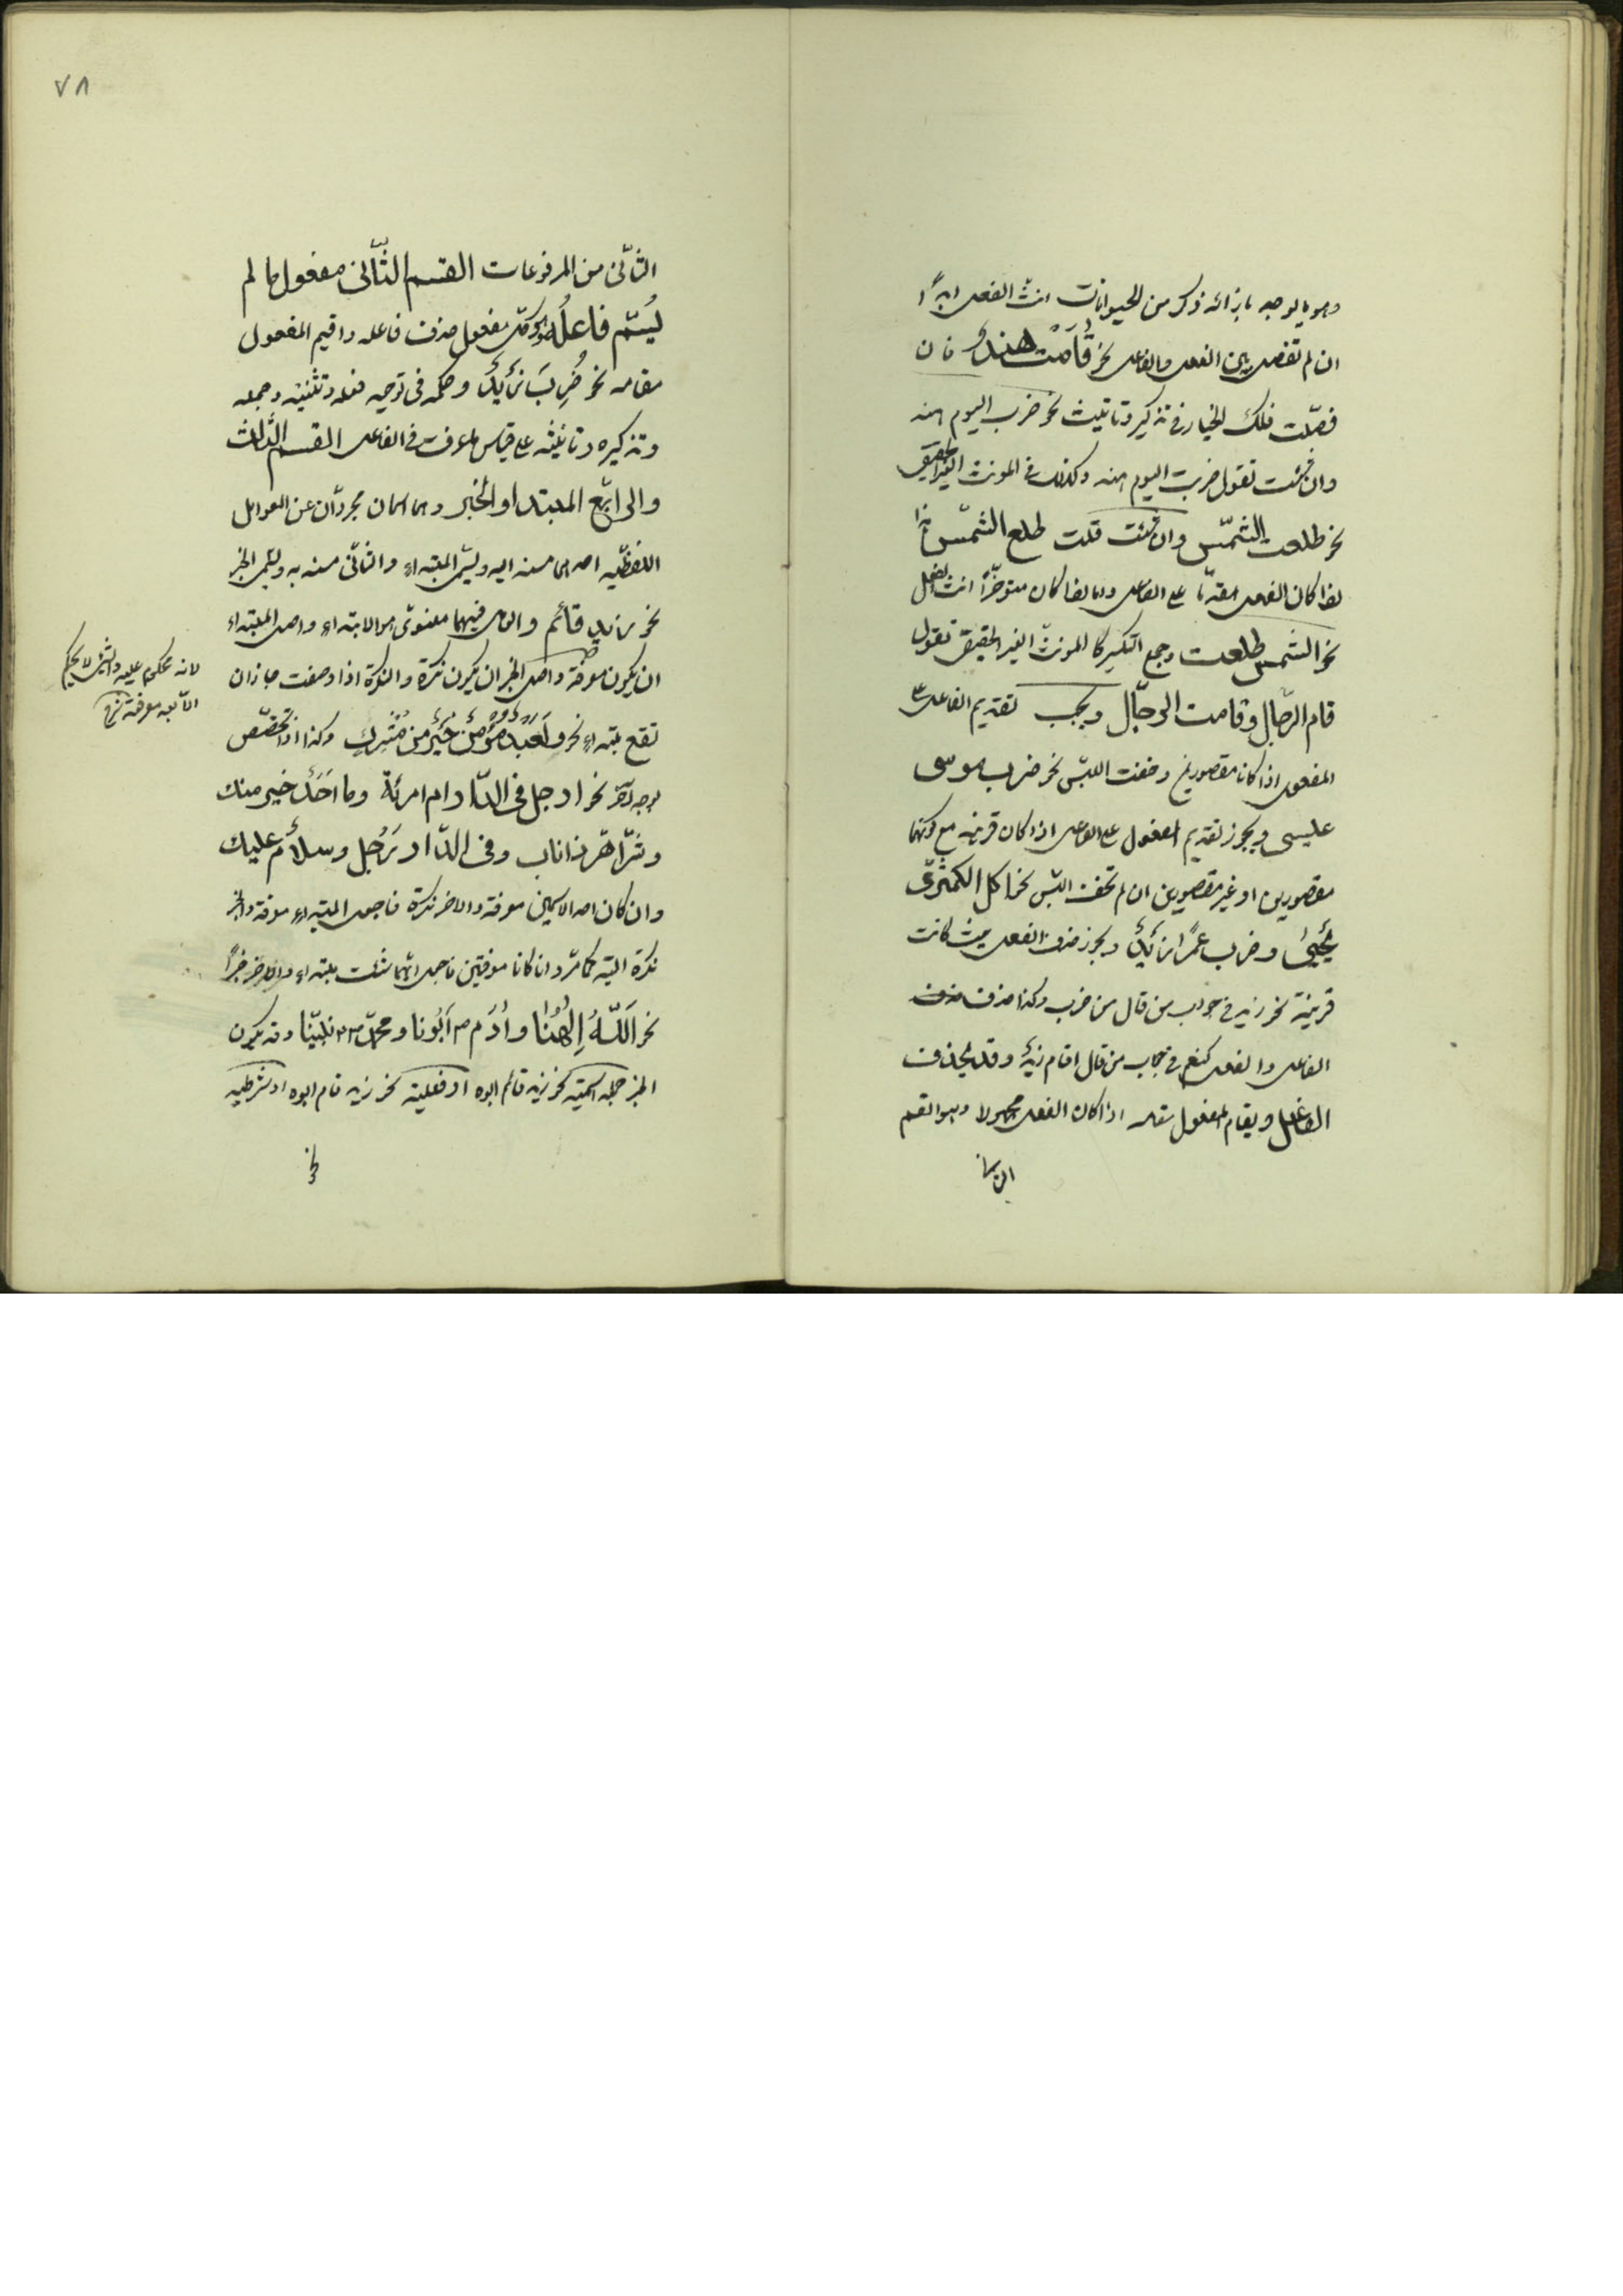 وهو ما يوجد بازائه ذكر من الحيوانات انث الفعل ابدًا
ان لم تفصل بين الفعل والفاعل نحو قَامَتْ هندٌ فان
فصّلت فلك الخيار في تذكير وتانيث نحو ضرب اليوم هند
وان شئت تقول ضربت اليوم هند وكذلك في المونث الغير الحقيقي
نحو طلعت الشّمس وان شئت قلت طلع الشّمس هذا
اذا كان الفعل مقدمّا على الفاعل واما اذا كان متوخّرًا انث الفعل
نحو الشمس طلعت وجمع التكسير كالمونث الغير الحقيقى تقول
قام الرّجال وقامت الرجّال ويجب تقديم الفاعل على
المفعول اذا كانا مقصورين وخفت اللبس نحو ضرب موسى
عليسى ويجوز تقديم المفعول على الفاعل اذا كان قرينه مع كونهما
مقصورين او غير مقصورين ان لم تخف اللبس نحو اكل الكمثرّى
يُحيىٰ وضرب عمرًا زَيدٌ ويجوز حذف الفعل حيث كانت
قرينة نحو زيد في جواب من قال من ضرب وكذا حذف
الفاعل والفعل كنعم في جواب من قال اقام زيدٌ وقد يحذف
الفاعل ويقام المفعول مقامه اذا كان الفعل مجهولا وهو القسم
الثانى
٧٨
الثانّى من المرفوعات القسم الثّانى مفعول ما لم
يُسَمّ فاعلُه وهو كلّ مفعول حذف فاعله واقيم المفعول
مقامه نحو ضُرِبَ زَيدٌ وحكمه فى توحيد فعله وتثنيته وجمعه
وتذكيره وتانيثه على قياس ما عرفت في الفاعل القسم الثالث
والرابّع المبتداو الخبر وهما اسمان مجردّان عن العوامل
اللفظيّه احدهما مسند اليه ويسمّى المبتداء والثانّى مسند به ويسمّى الخبر
نحو زيد قائم والعامل فيهما معنوىّ هو الابتداء واصل المبتداء
ان يكون معرفة واصل الخبر ان يكون نكرة والنكرة اذا وصفت جاز ان
تقع مبتداء نحو ولَعَبدٌ مُؤمنٌ خَيرٌ مِن مُشرِكٍ وكذا اذا تخصّص
بوجه آخر نحو ارجل فى الدّار ام امرئة وما اَحَدٌ خير منك
وشرّ اهّر ذا ناب وفى الدّار رَجُل وسلاٌم عليك
وان كان احد الاسمين معرفة والاخر نكرة فاجعل المبتداء معرفة والخبر
نكرة البتّه كما مرّ وان كانا معرفتين فاجعل ايّهما شئت مبتداء والاخر خبرًا
نحو اَللّهُ اِلٰهُنا واٰدَم م اَبُونا ومحمّد ص نبيّنا وقد يكون
الخبر جملة اسميّة نحو زيد قائم ابوه او فعلية نحو زيد قام ابوه او شرطيه
نحو
لانه محكوم عليه والشئ لا يحكم
الّا بعد معرفته شرح